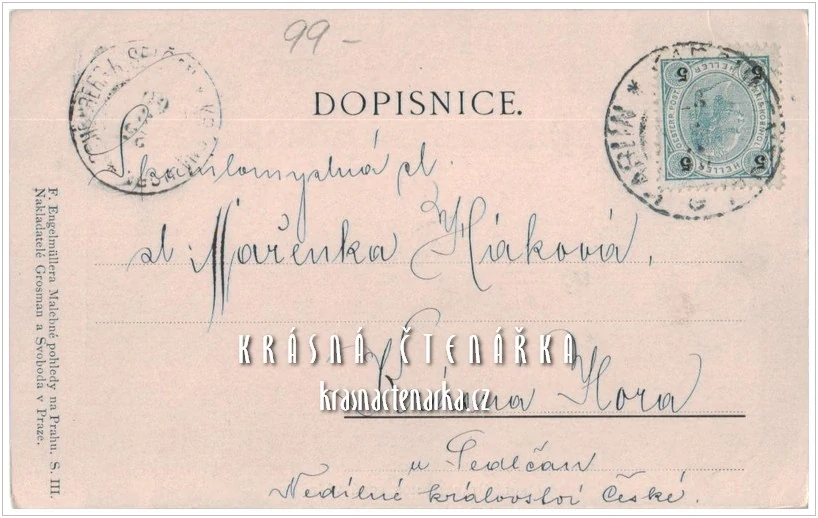 99-
DOPISNICE.
5 5
HELLER
5 5
KARLÍN
sl.
sl. Mařenka Háková,
KRÁSNÁ ČTENÁŘKA
krasnactenarka.cz
Hora
u Sedlčan
Nedílné království České.
F. Engelmüllera Malebné pohledy na Prahu. S. III.
Nakladatelé Grosman a Svoboda v Praze.